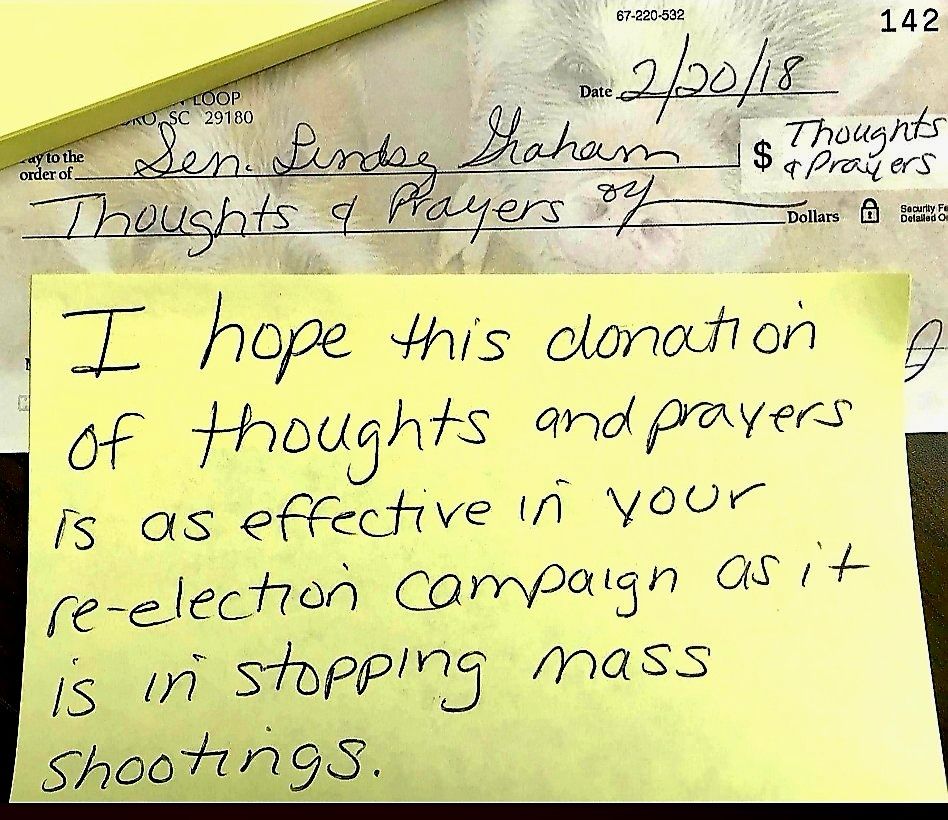 67-220-532
142
Date 2/20/18
LOOP
SC 29180
ay to the
order of Sen. Lindsey Graham $ Thoughts
& Prayers
Thoughts & Prayers Dollars
Security Fe
Detailed On
I hope this donation
of thoughts and prayers
is as effective in your
re-election campaign as it
is in stopping mass
shootings.